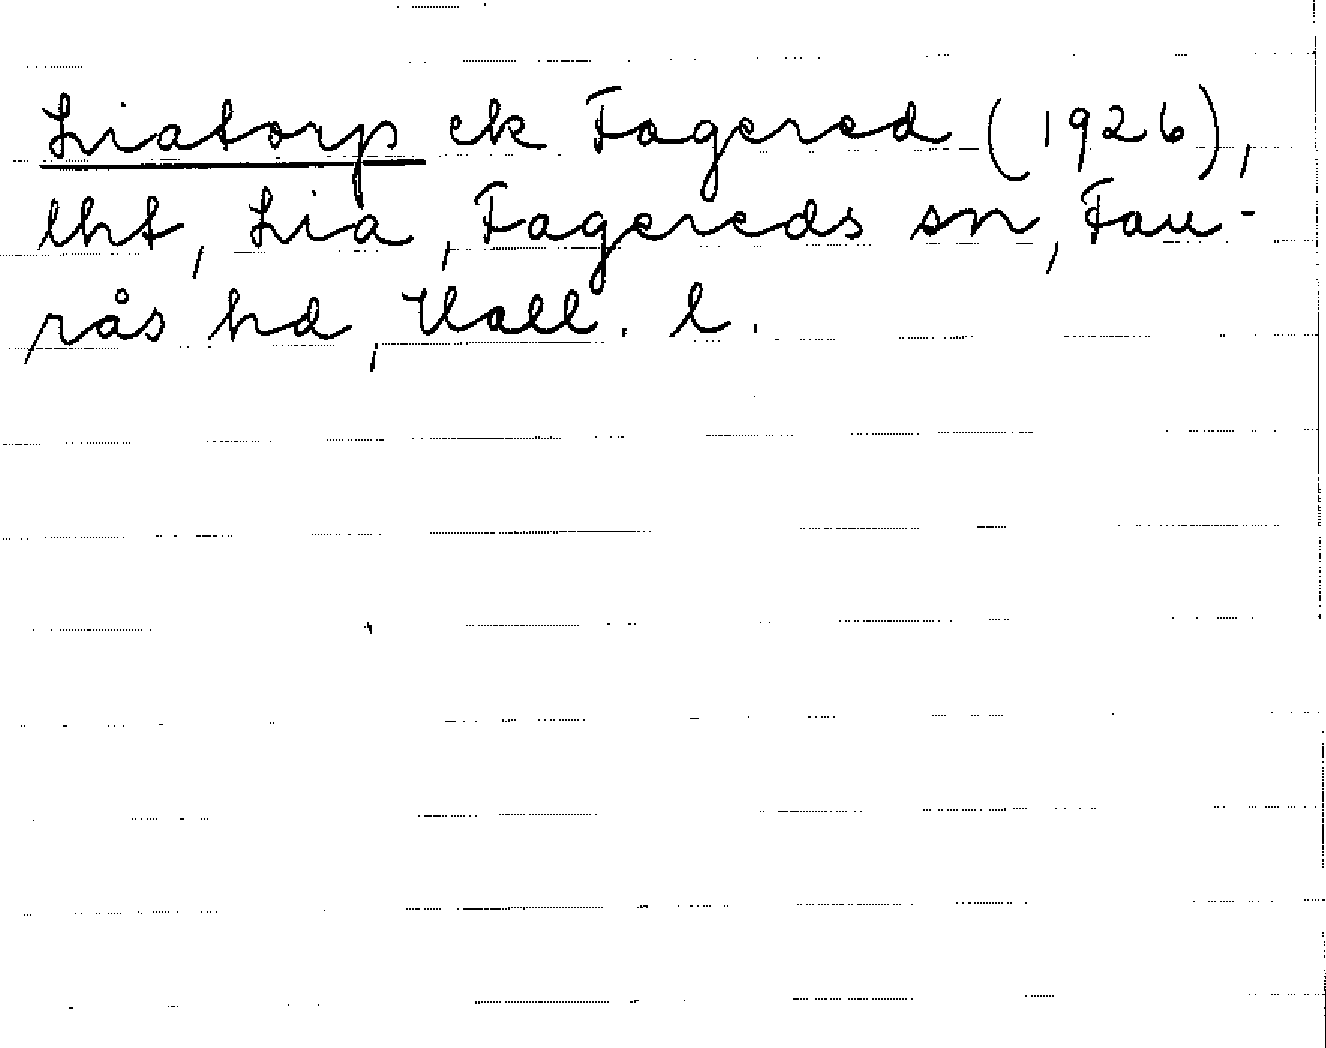 Liatorp ek Fagered (1926),
lht, Lia, Fagereds sn, Fau-
rås hd, Hall. l.